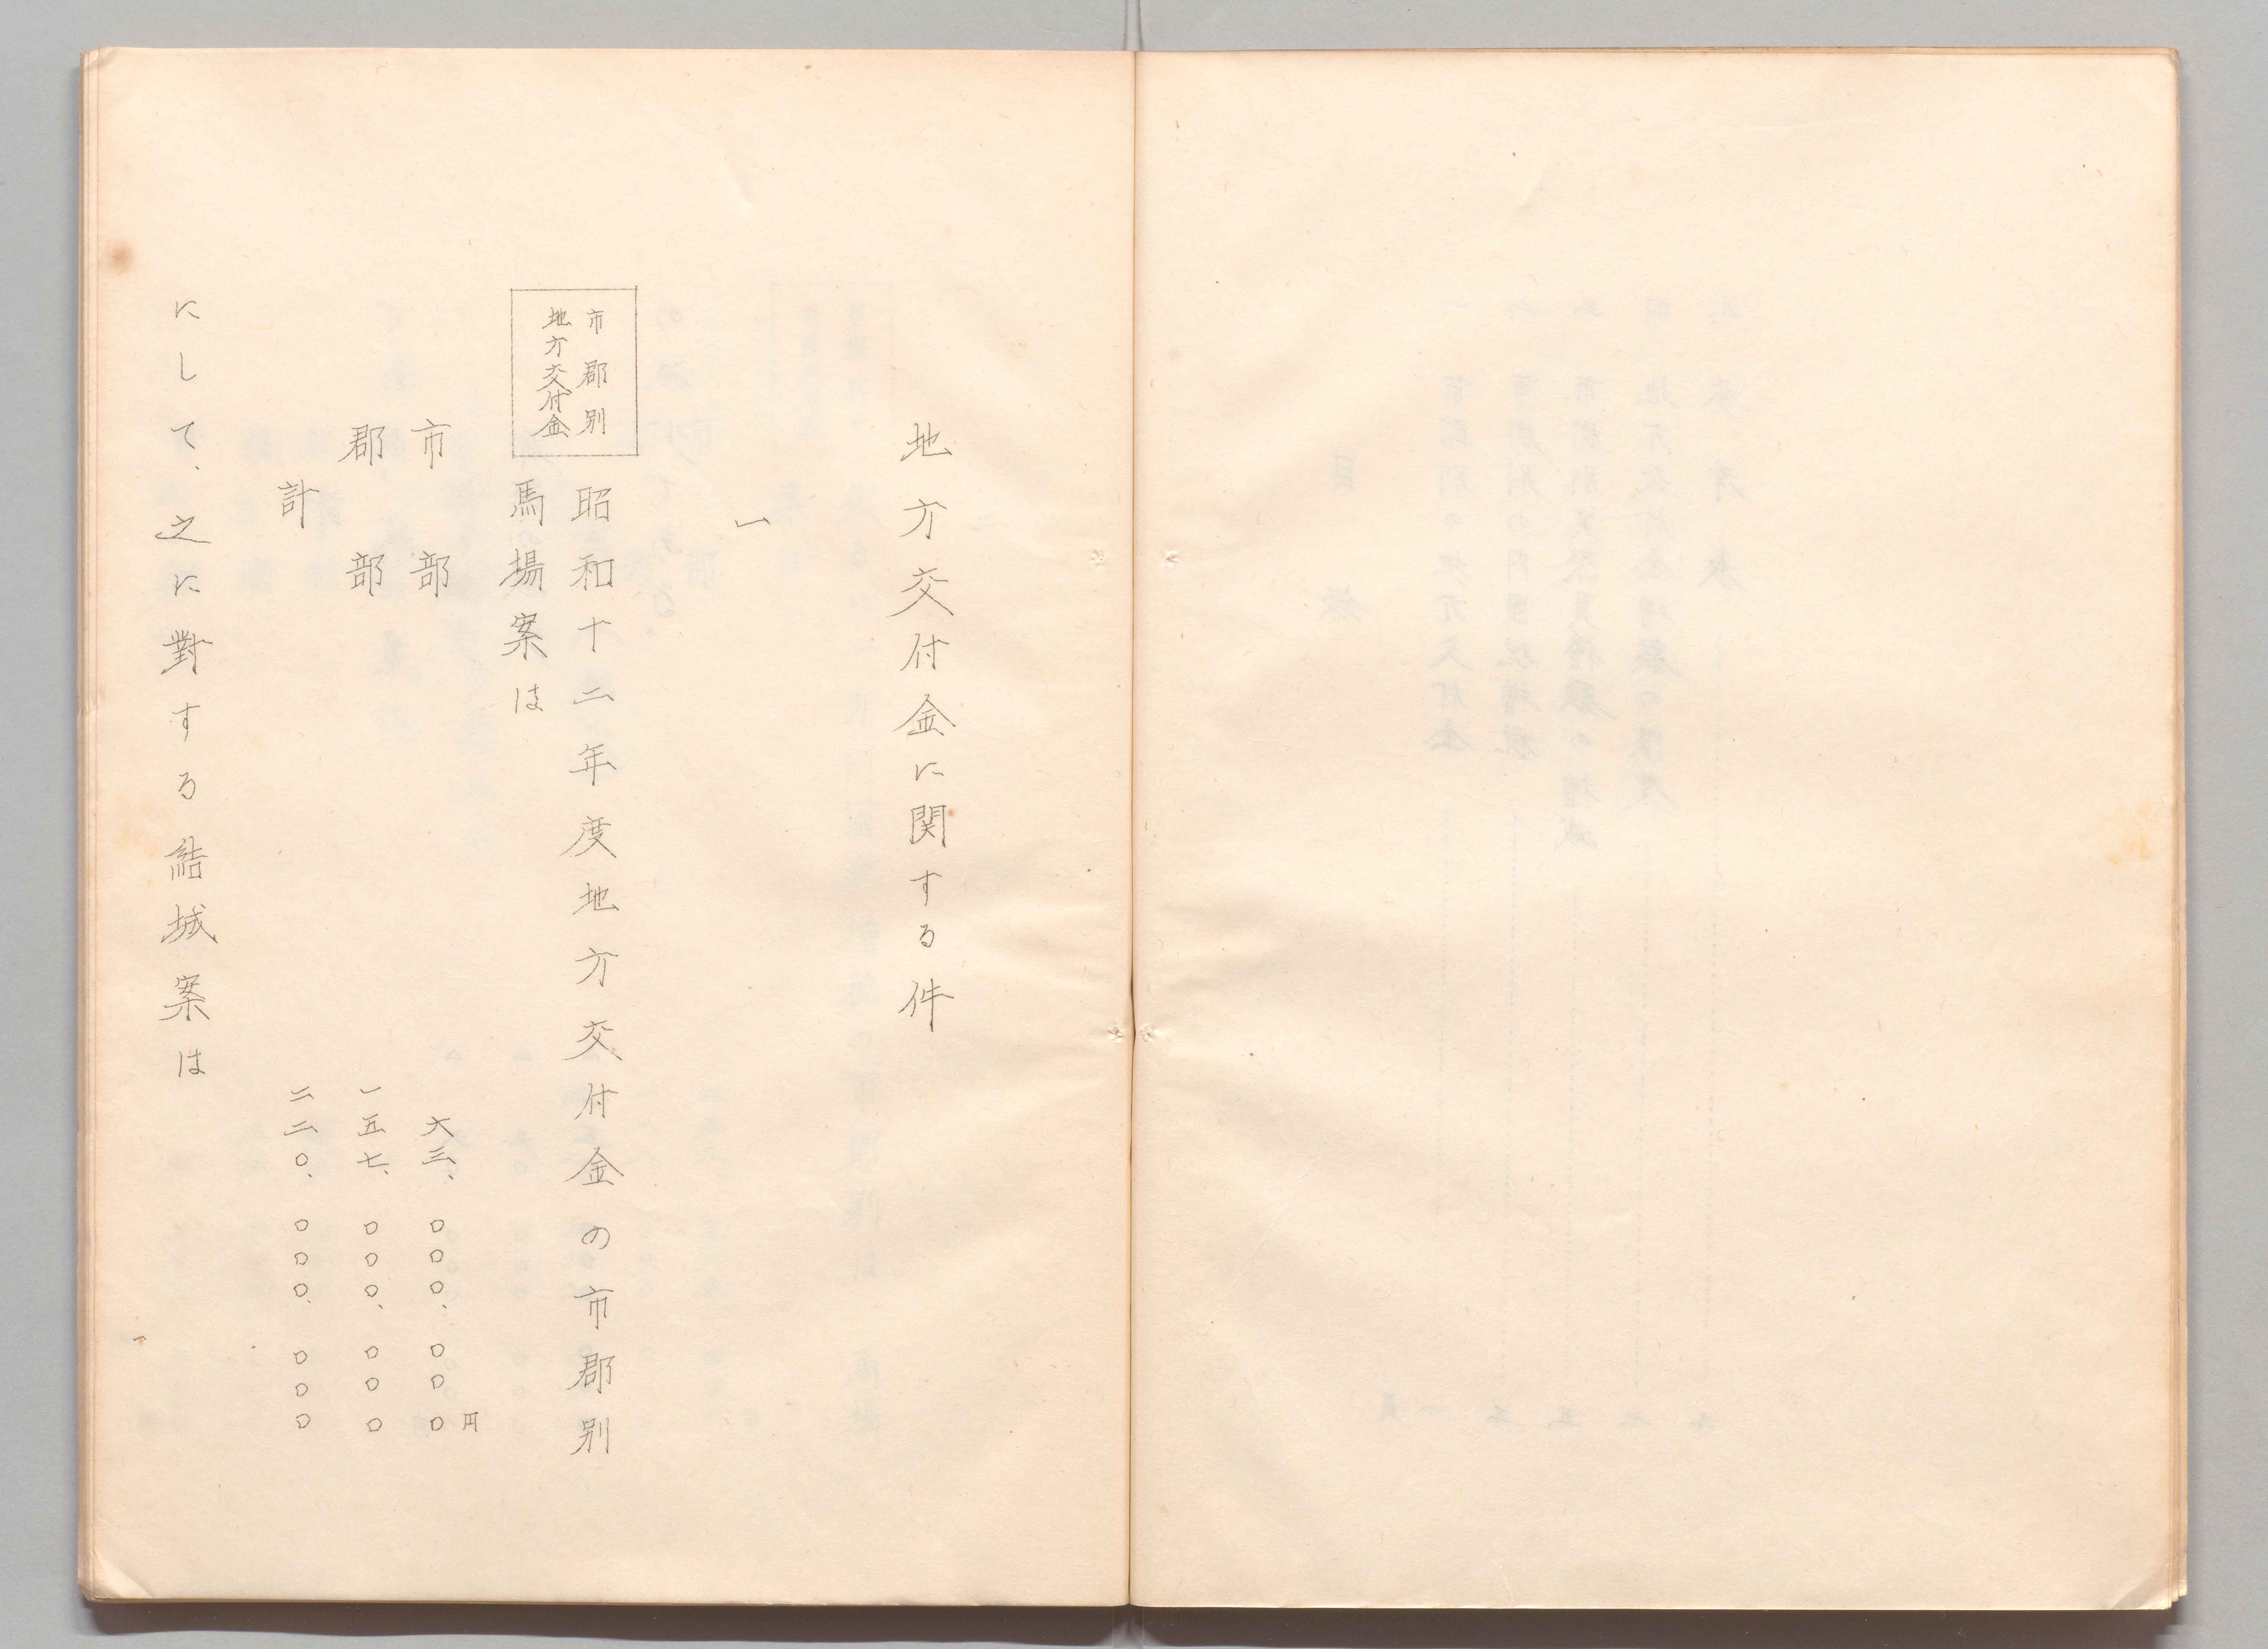 地方交付金に関する件
一
市郡別
地方交付金
昭和十二年度地方交付金の市郡別
馬場案は
円
市部 六三、〇〇〇、〇〇〇
郡部 一五七、〇〇〇、〇〇〇
計 二二〇、〇〇〇、〇〇〇
にして、之に對する結城案は
一